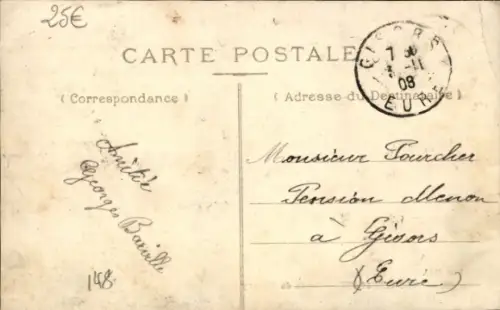 25€
CARTE POSTALE
(Correspondance)
(Adresse du Destinataire)
GISORS
7 30
11
08
EURE
Amitié
Georges
148
Monsieur Fourcher
Pension Menon
à Gisors
(Eure)